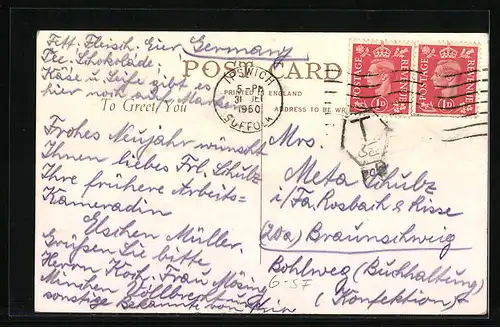 Fett, Fleisch, Eier Germany
Tee, Schokolade,
Käse u. Seife gibt es
hier noch auf Marken
POST CARD
PRINTED ENGLAND
To Greet You
ADDRESS TO BE WR
IPSWICH
5 PM
31 DE
1950
SUFFOLK
POSTAGE REVENUE
1D
POSTAGE REVENUE
1D
T
Frohes Neujahr wünscht
Ihnen liebes Frl. Schulz
Ihre frühere Arbeits-
Kameradin
Elschen Müller.
Grüßen Sie bitte
Herrn Koif, Frau Mösing
Vollbrecht und
sonstige Bekannte von
Mrs.
Meta Schulz
i/Fa. Rosbach & Risse
(20a) Braunschweig
Bohlweg (Buchhaltung)
(Konfektion)
G-SF